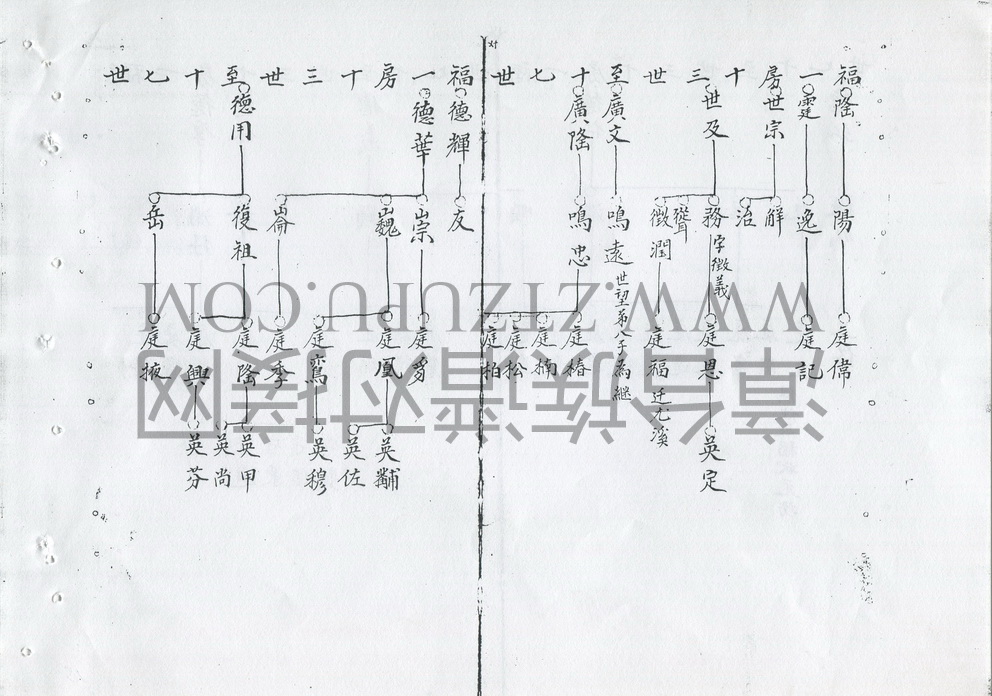 福一房十三世至十七世
隆
霆
世宗
世及
廣文
廣隆
陽
逸
解
治
務 字徵義
聳
徵潤
鳴遠 世望第八子為繼
鳴忠
庭偉
庭記
庭恩
庭福 迁尤溪
庭椿
庭楠
庭松
庭柏
英定
福一房十三世至十七世
德輝
德華
德用
友
崇
巍
崙
復祖
岳
庭豸
庭鳳
庭鸞
庭季
庭隆
庭興
庭掖
英黼
英佐
英穆
英甲
英尚
英芬
WWW.ZTZUPU.COM
漳台族谱对接网